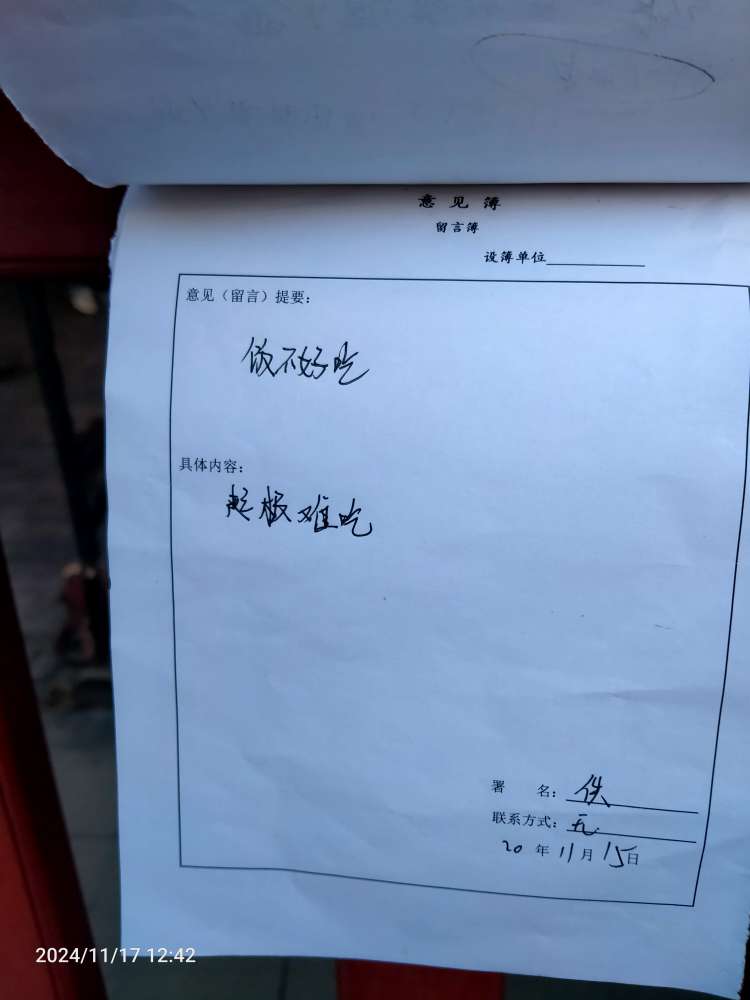 意见簿
留言簿
设簿单位
意见（留言）提要：
做不好吃
具体内容：
超极难吃
署 名：佚
联系方式：无
20 年 11 月 15 日
2024/11/17 12:42